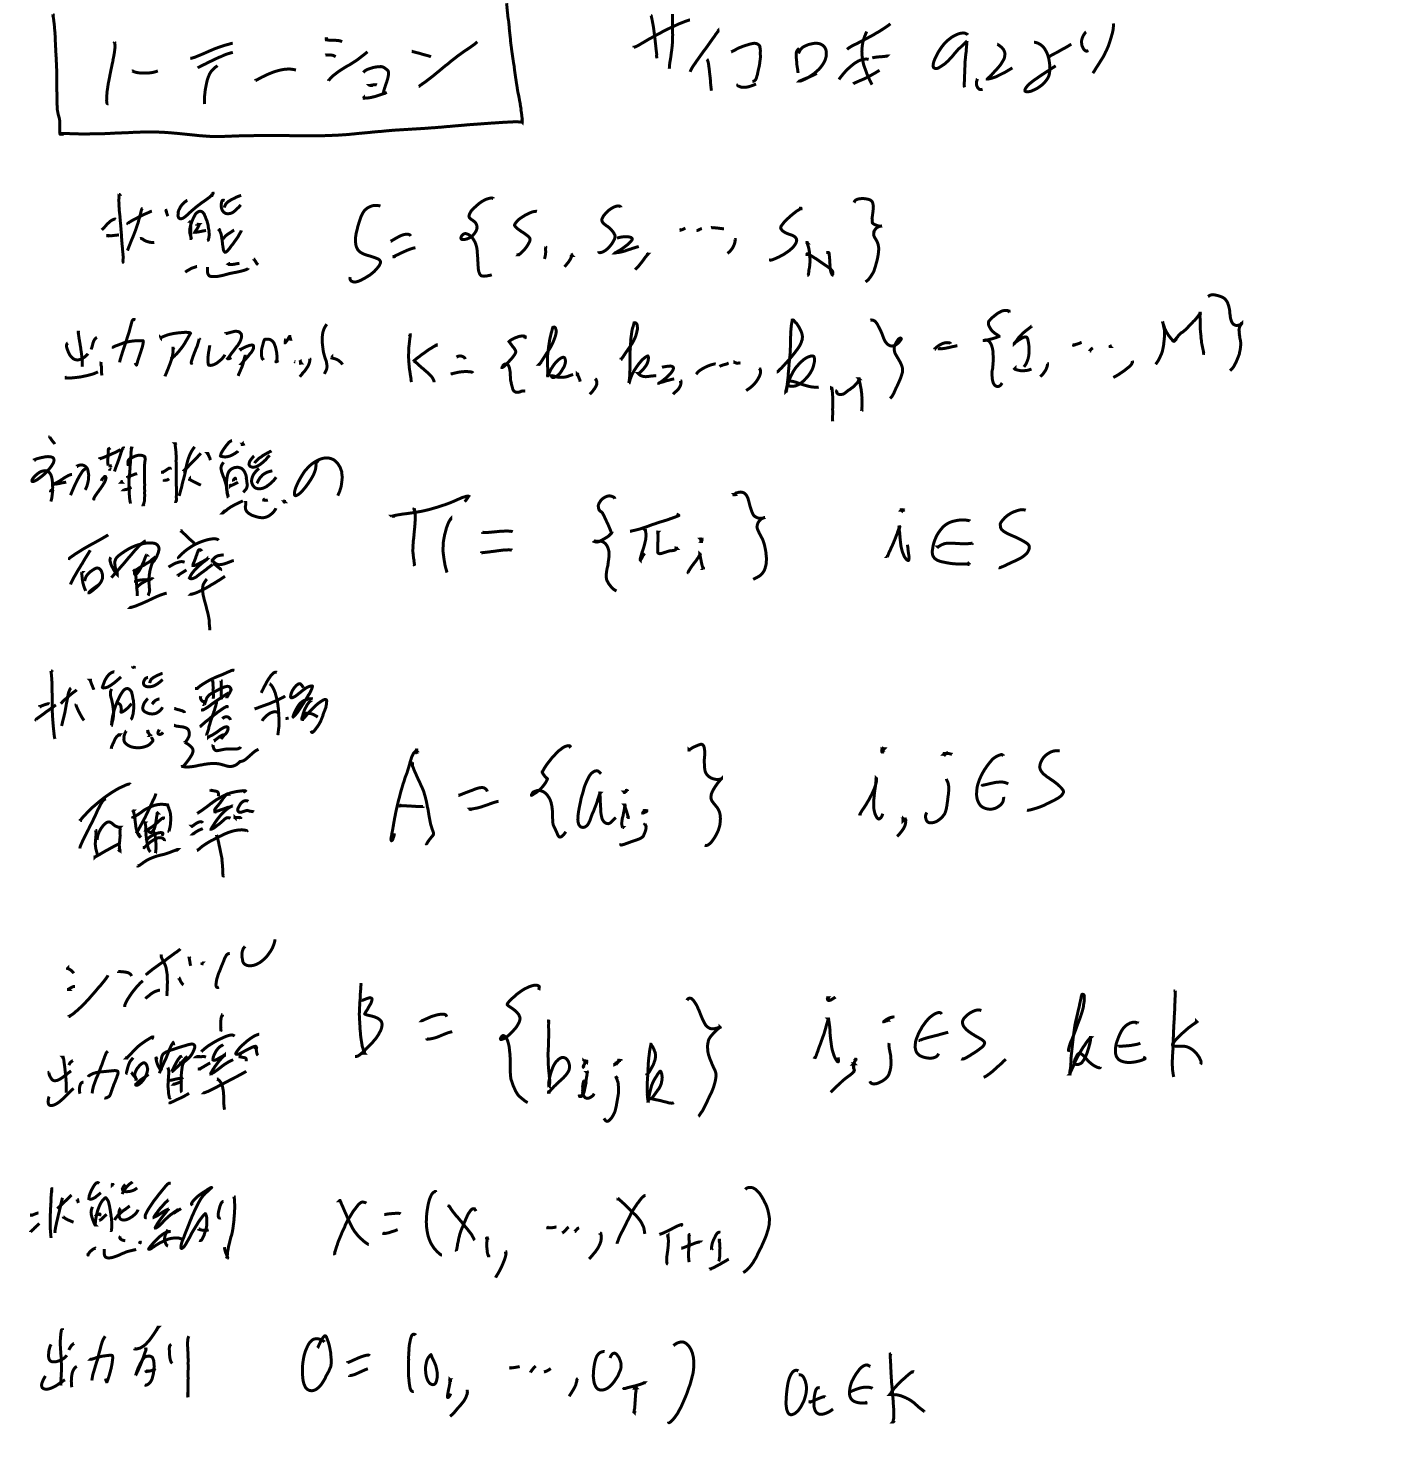 ノーテーション サイコロ本 9.2より
状態 S = {s₁, s₂, …, s_N}
出力アルファベット K = {k₁, k₂, …, k_M} = {1, …, M}
初期状態の
確率 Π = {π_i} i∈S
状態遷移
確率 A = {a_ij} i, j∈S
シンボル
出力確率 B = {b_ijk} i, j∈S, k∈K
状態系列 X = (X₁, …, X_{T+1})
出力列 O = (o₁, …, o_T) o_t∈K